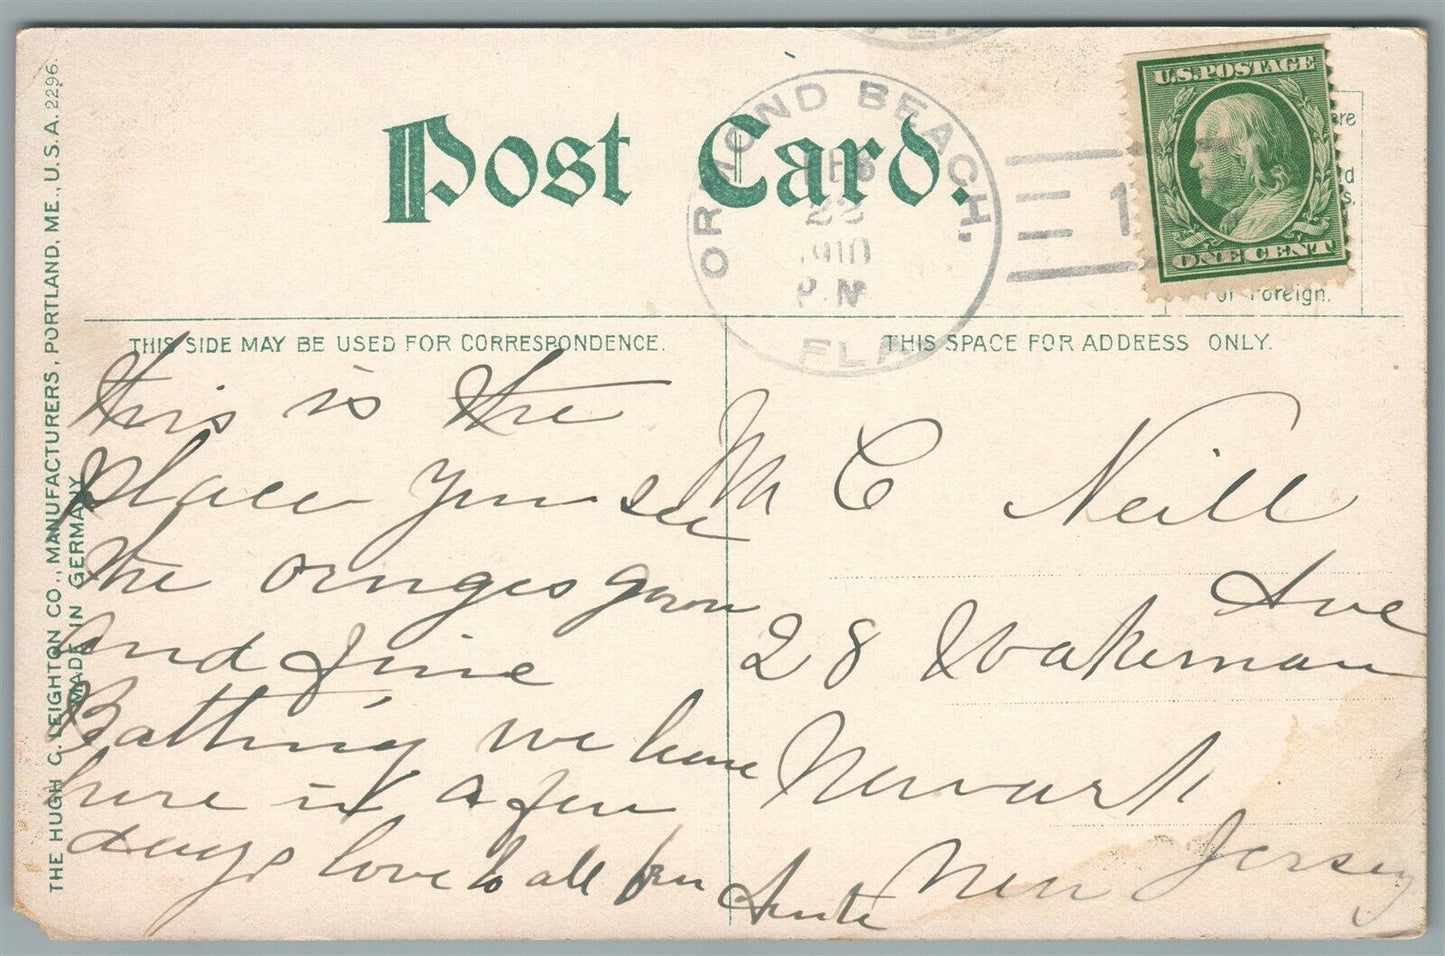 THE HUGH C. LEIGHTON CO., MANUFACTURERS, PORTLAND, ME., U.S.A. 2296.
MADE IN GERMANY
Post Card.
ORMOND BEACH.
FEB
22
1910
P.M.
FLA.
1
U.S. POSTAGE
ONE CENT
re
d
s,
For Foreign.
THIS SIDE MAY BE USED FOR CORRESPONDENCE.
this is the
place you see
the oringes grown
and fine
Bathing we leave
here in a few
days love to all from Aunte
THIS SPACE FOR ADDRESS ONLY.
M C Neill
28 Wakeman Ave
Newark
New Jersey